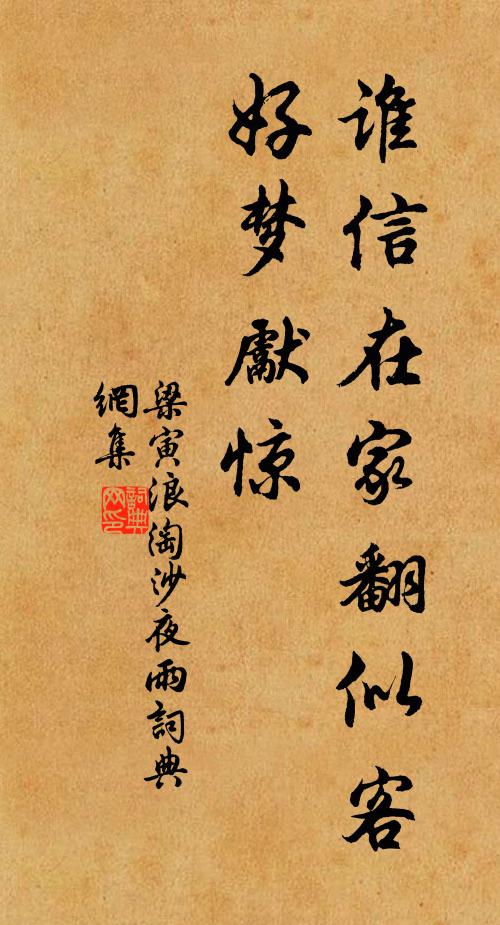 谁信在家翻似客
好梦獻惊
梁寅浪淘沙夜雨詞典
網集
詞典
网印